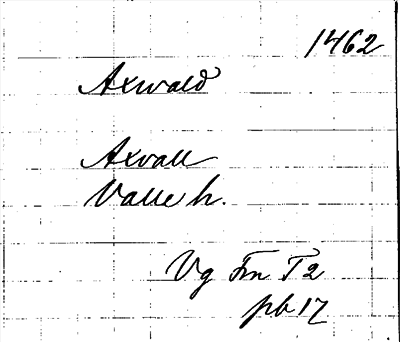 1462
Axwald
Axvall
Valle h.
Vg Fm T2
pb 17